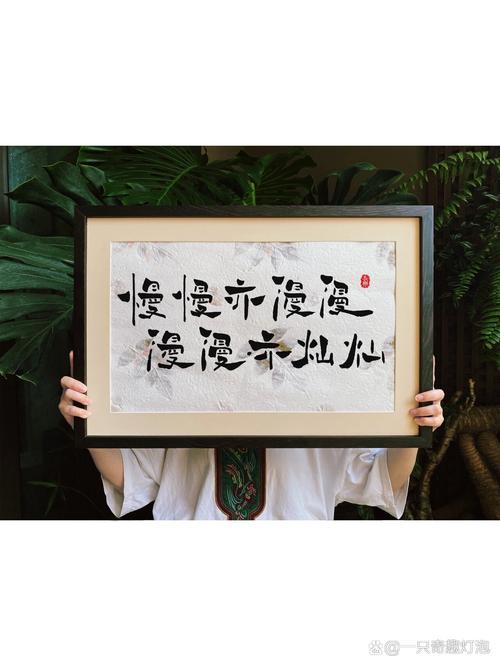 慢慢亦漫漫
漫漫亦灿灿
@一只奇趣灯泡